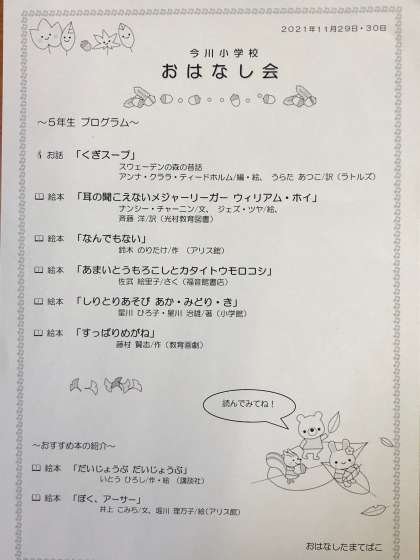 2021年11月29日・30日
今川小学校
おはなし会
～5年生 プログラム～
お話 「くぎスープ」
スウェーデンの森の昔話
アンナ・クララ・ティードホルム/編・絵、 うらた あつこ/訳 (ラトルズ)
絵本 「耳の聞こえないメジャーリーガー ウィリアム・ホイ」
ナンシー・チャーニン/文、 ジェズ・ツヤ/絵、
斉藤 洋/訳 (光村教育図書)
絵本 「なんでもない」
鈴木 のりたけ/作 (アリス館)
絵本 「あまいとうもろこしとカタイトウモロコシ」
佐武 絵里子/さく (福音館書店)
絵本 「しりとりあそび あか・みどり・き」
星川 ひろ子・星川 治雄/著 (小学館)
絵本 「すっぱりめがね」
藤村 賢志/作 (教育画劇)
読んでみてね！
～おすすめ本の紹介～
絵本 「だいじょうぶ だいじょうぶ」
いとう ひろし/作・絵 (講談社)
絵本 「ぼく、アーサー」
井上 こみち/文、堀川 理万子/絵(アリス館)
おはなしたまてばこ